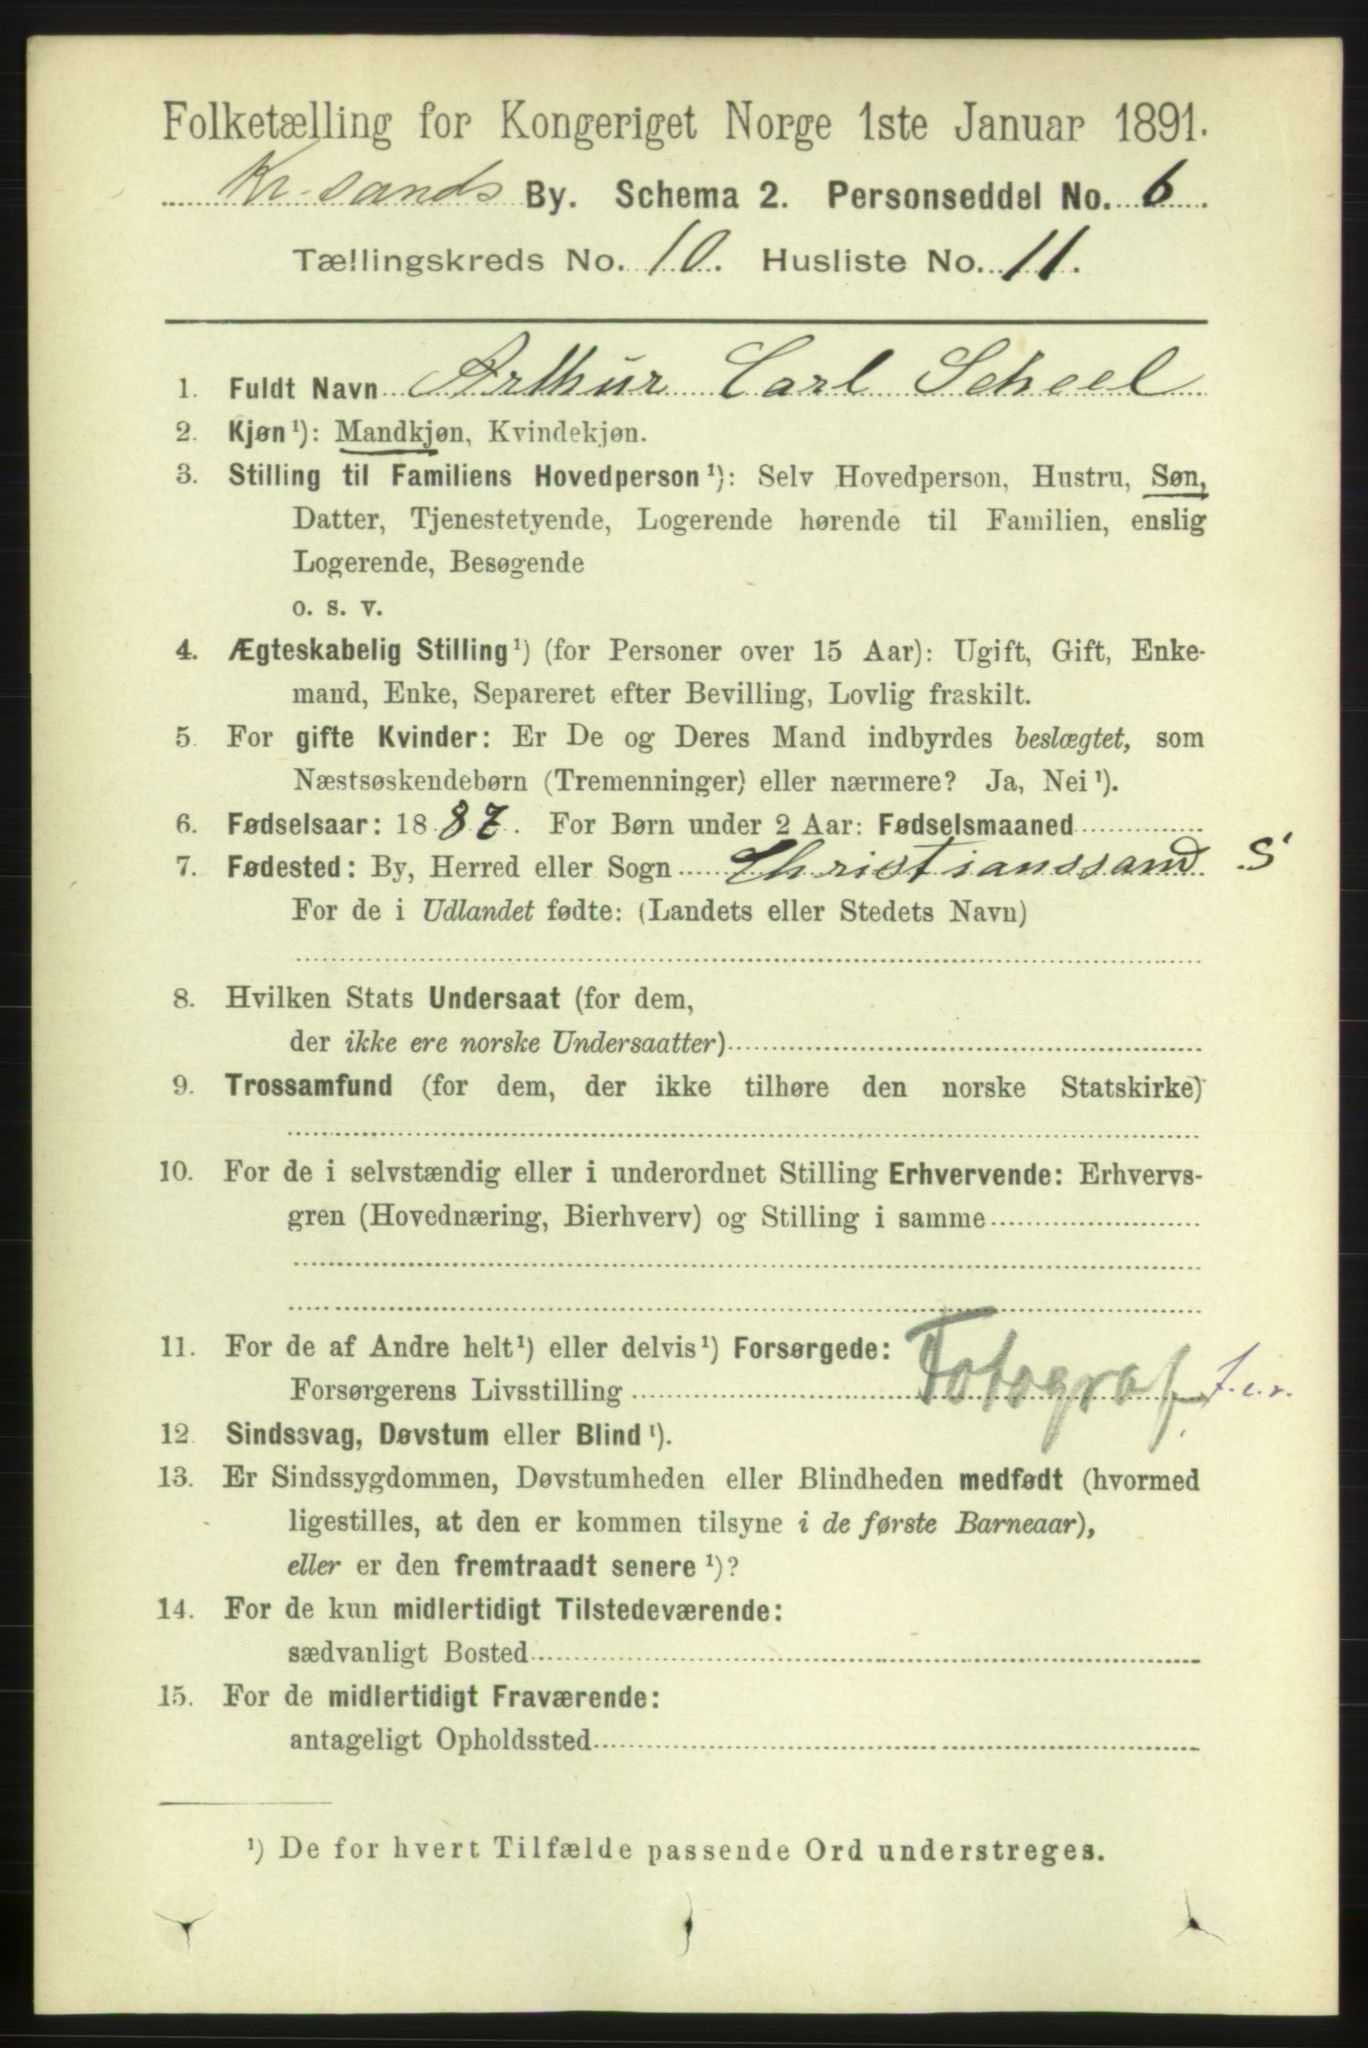 Folketælling for Kongeriget Norge 1ste Januar 1891.
Kr-sands By. Schema 2. Personseddel No. 6.
Tællingskreds No. 10. Husliste No. 11.
1. Fuldt Navn Arthur Carl Scheel
2. Kjøn¹): Mandkjøn, Kvindekjøn.
3. Stilling til Familiens Hovedperson¹): Selv Hovedperson, Hustru, Søn,
Datter, Tjenestetyende, Logerende hørende til Familien, enslig
Logerende, Besøgende
o. s. v.
4. Ægteskabelig Stilling¹) (for Personer over 15 Aar): Ugift, Gift, Enke-
mand, Enke, Separeret efter Bevilling, Lovlig fraskilt.
5. For gifte Kvinder: Er De og Deres Mand indbyrdes beslægtet, som
Næstsøskendebørn (Tremenninger) eller nærmere? Ja, Nei¹).
6. Fødselsaar: 1887. For Børn under 2 Aar: Fødselsmaaned
7. Fødested: By, Herred eller Sogn Christianssand S
For de i Udlandet fødte: (Landets eller Stedets Navn)
8. Hvilken Stats Undersaat (for dem,
der ikke ere norske Undersaatter)
9. Trossamfund (for dem, der ikke tilhøre den norske Statskirke)
10. For de i selvstændig eller i underordnet Stilling Erhvervende: Erhvervs-
gren (Hovednæring, Bierhverv) og Stilling i samme
11. For de af Andre helt¹) eller delvis¹) Forsørgede:
Forsørgerens Livsstilling Fotograf f.e.r.
12. Sindssvag, Døvstum eller Blind¹).
13. Er Sindssygdommen, Døvstumheden eller Blindheden medfødt (hvormed
ligestilles, at den er kommen tilsyne i de første Barneaar),
eller er den fremtraadt senere¹)?
14. For de kun midlertidigt Tilstedeværende:
sædvanligt Bosted
15. For de midlertidigt Fraværende:
antageligt Opholdssted
¹) De for hvert Tilfælde passende Ord understreges.